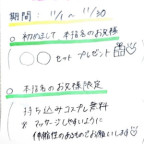 期間：11/1 〜 11/30
○ 初めまして 本指名のお客様
○○セットプレゼント
○ 本指名のお客様限定
持ち込みコスプレ無料
※ マッサージしやすいように
伸縮性のあるものでお願いします